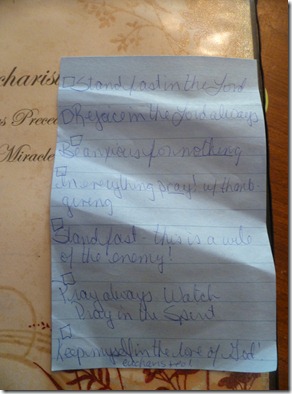 charist
s Prece
Miracle
Stand fast in the Lord
Rejoice in the Lord always
Be anxious for nothing
In everything pray! w/ thanks-
giving
Stand fast - this is a wile
of the enemy!
Pray always. Watch
Pray in the Spirit
Keep myself in the love of God!
eucharisteo!